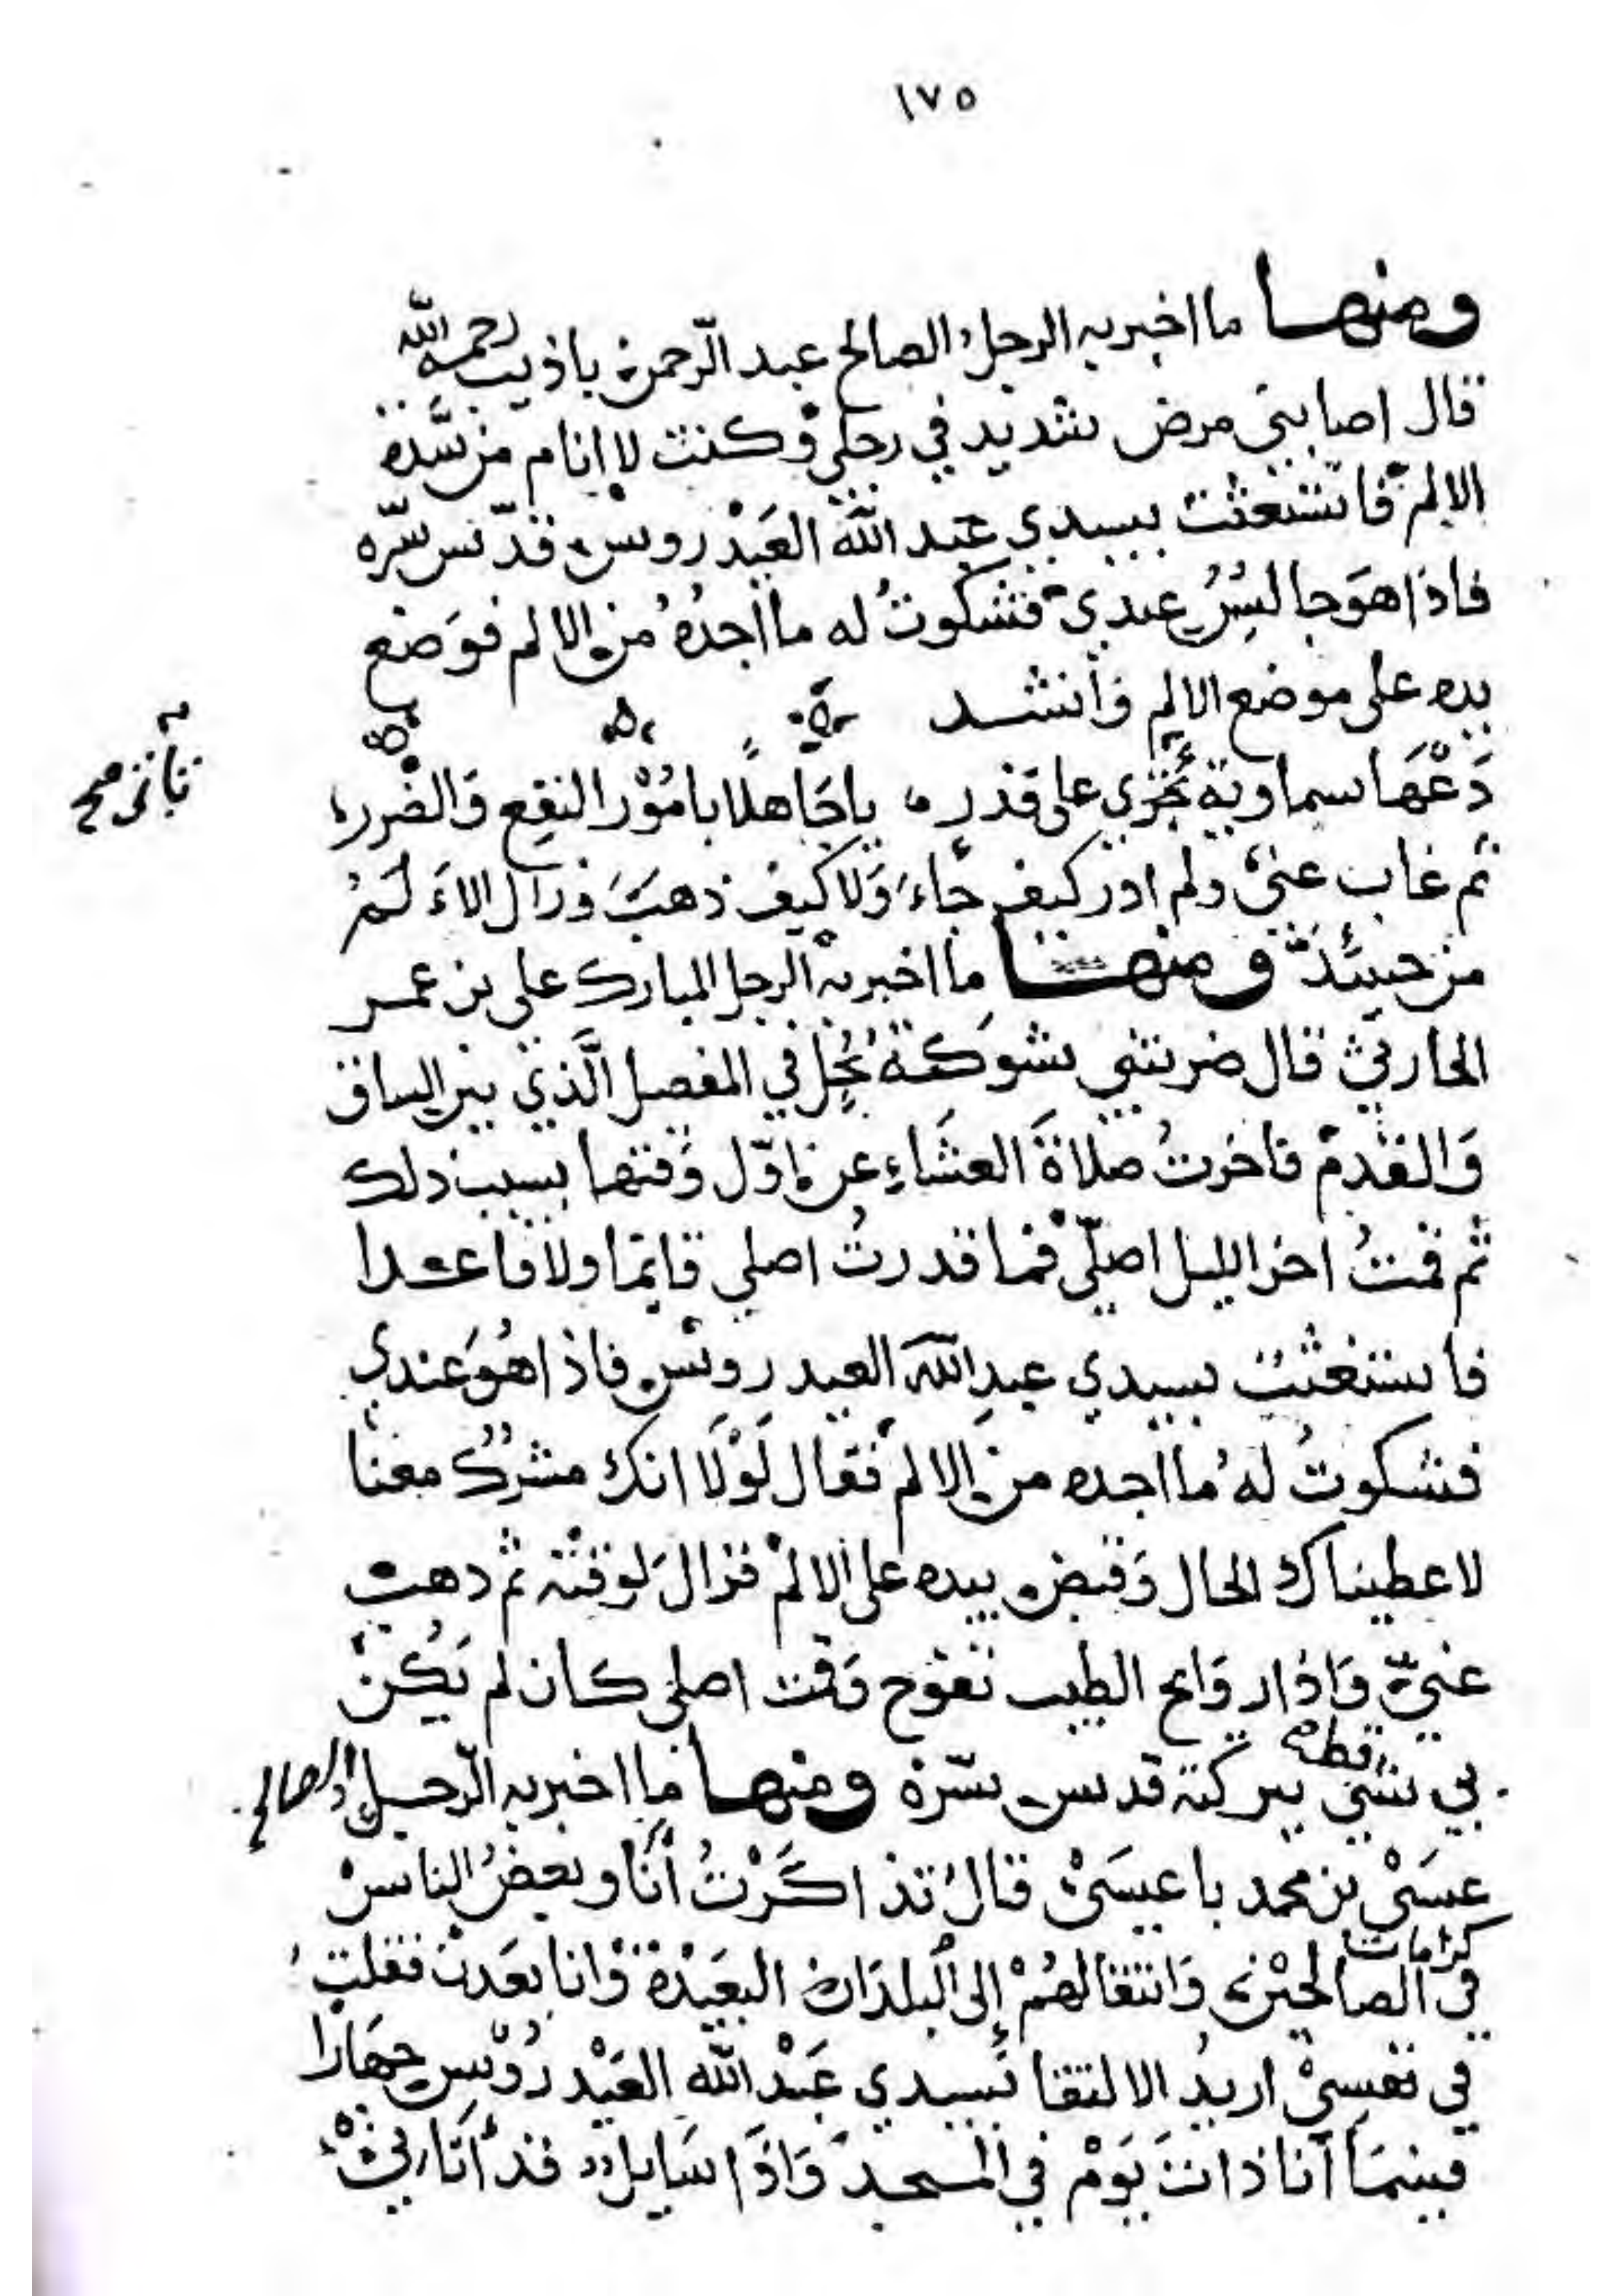 ١٧٥
ومنها ما اخبر به الرجل الصالح عبد الرّحمن باذيب رحمه الله
قال اصابني مرض شديد في رجلي وكنت لا انام من شدة
الالم فاستغثت بسيدي عبد الله العَيْدروس قدّس سرّه
فاذا هوَ جالسٌ عندي فشكوتُ له ما اجدُهُ من الالم فوَضع
يده على موضع الالم فأنشد
دَعْهَا سماوية تجْري على قدَرٍ يا جَاهلًا بامُوْر النفع وَالضرر
تأتي صح
ثم غاب عني ولم ادر كيف جَاءَ وَلا كيف ذهبَ وزال الاَ لَمُ
من حينئذ ومنها ما اخبر به الرجل المبارك علي بن عمر
الحارثي قال ضربتني شوكة نخل في المفصل الَّذي بين الساق
وَالقدم فاخرتُ صلاةَ العشَاءِ عن اوّل وَقتها بسبب ذلك
ثم قمتُ اخر الليل اصلّي فما قدرتُ اصلي قايمًا ولا قاعدا
فاستغثت بسيدي عبد الله العيدروس فاذا هُوَ عندي
فشكوتُ لهُ ما اجده من الالم فقال لَوْلَا انك مشركٌ معنا
لاعطيناك الحال وَقبض بيده على الالم فزالَ لوقته ثم ذهب
عنيّ وَاذا روَايح الطيب تفوح وَقمت اصلي كان لم يَكُنْ
بي شي قط ببركته قدس سرّهُ ومنها ما اخبر به الرّجل الصالح
عيسَىْ بن محمد باعيسَىْ قالَ تذاكَرْتُ أنَا وبعضُ الناسْ
في كرامات الصالحيْن وَانتقالهُمْ إلى البلدَان البعَيْدة وْانا بعَدنْ فقلت
في نفسِيْ اريدُ الالتقا بسيدي عَبْد الله العَيْدرُوْسِ جهَارا
فبينمَا أنا ذاتَ يَوْمْ في المسجد وَاذَا سَايل قد أتَاني